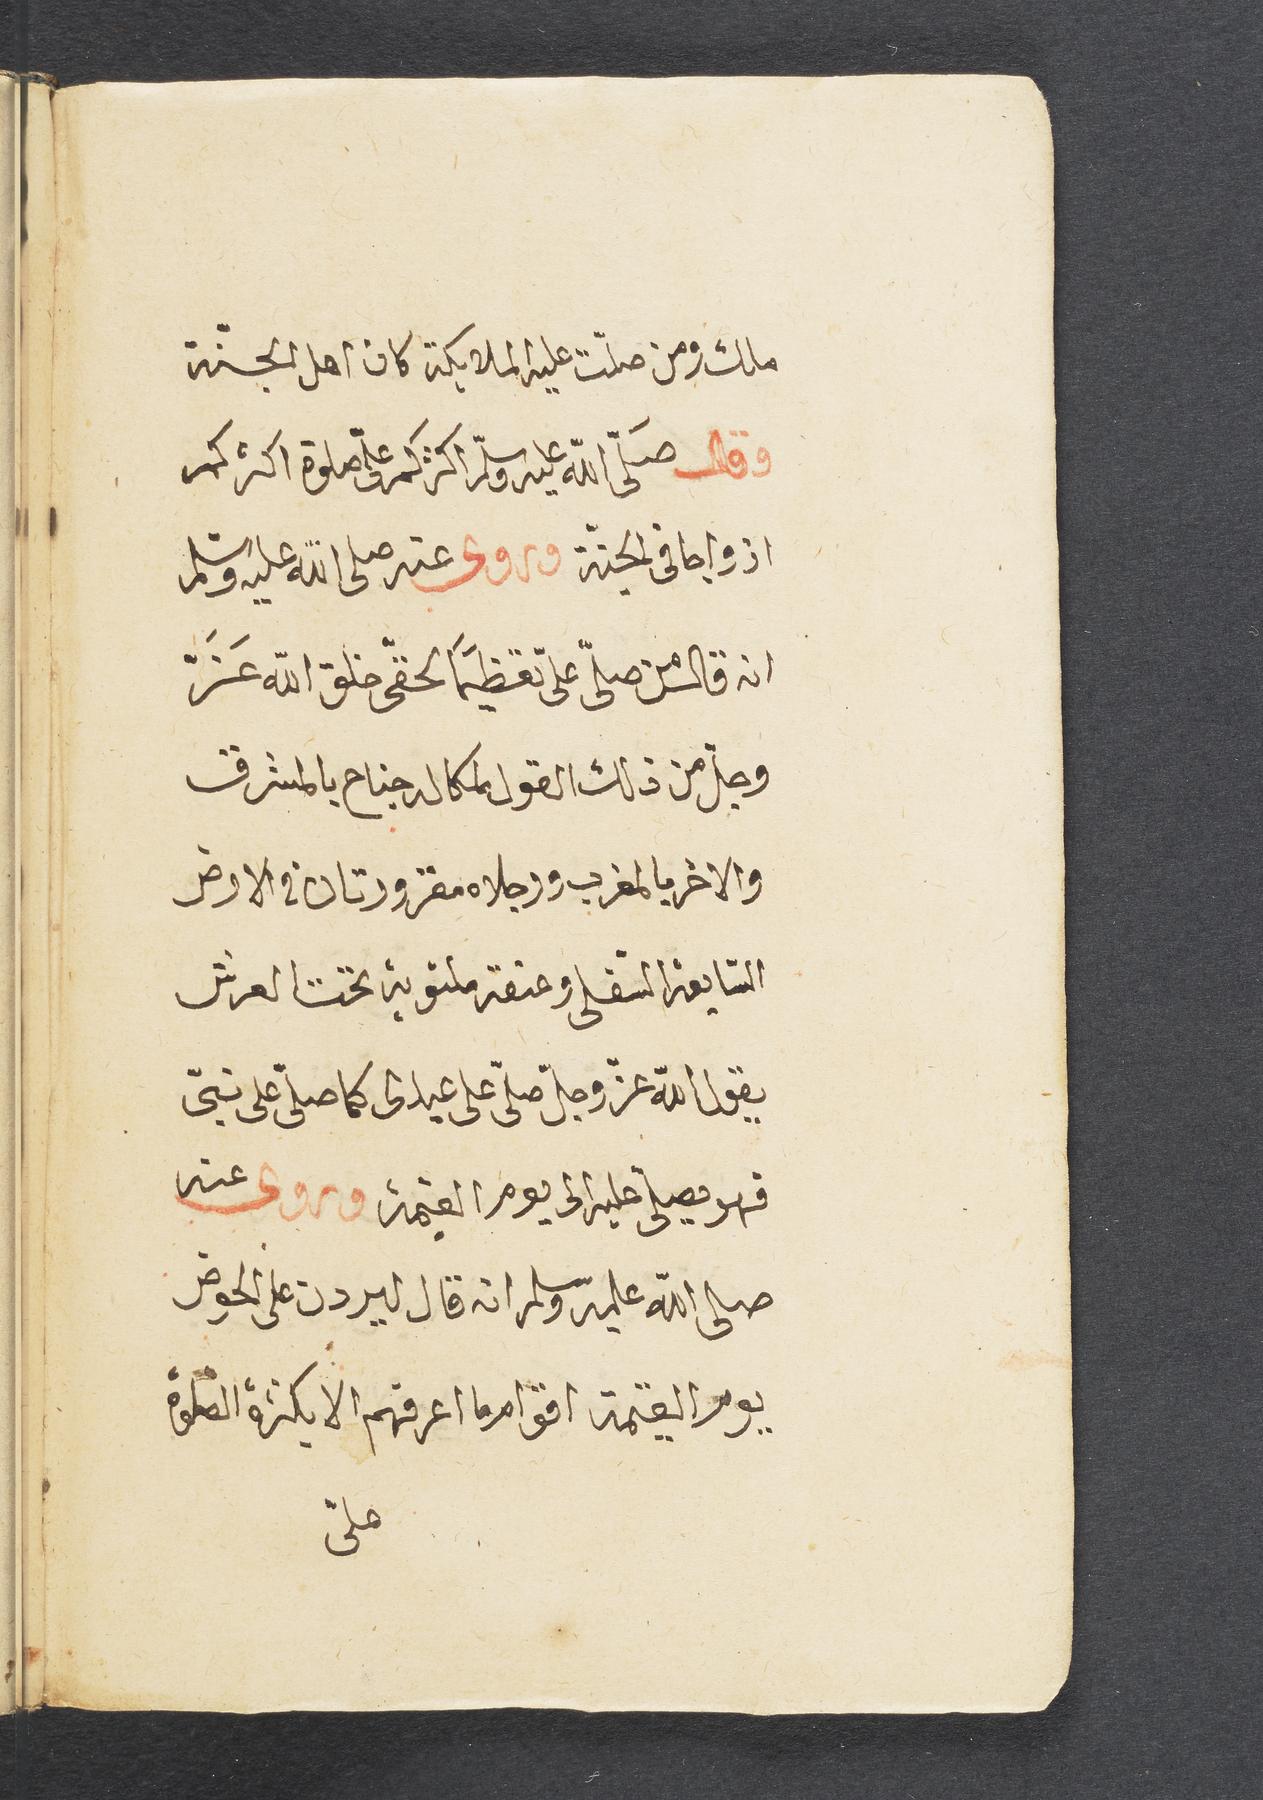 ملك ومن صلّت عليه الملايكة كان اهل الجنّة
وقال صَلّى اللّه عليه وسلّم اكثركم علىّ صلوة اكثركم
ازواجا فى الجنّة وروى عنه صلى اللّه عليه وسلم
انه قال من صلّى علىّ تعظيمًا لحقّى خلق اللّه عَزَّ
وجلّ من ذلك القول ملكا له جناح بالمشرق
والاخر بالمغرب ورجلاه مقزورتان فى الارض
السّابعة السّفلى وعنقه ملتوية تحت العرش
يقول اللّه عزّ وجلّ صلّ على عبدى كما صلّى على نبىّ
فهو يصلّى عليه الى يوم القيٰمة وروى عنه
صلى اللّه عليه وسلم انه قال ليردن على الحوض
يوم القيٰمة اقوام ما اعرفهم الا بكثرة الصّلوة
علىّ